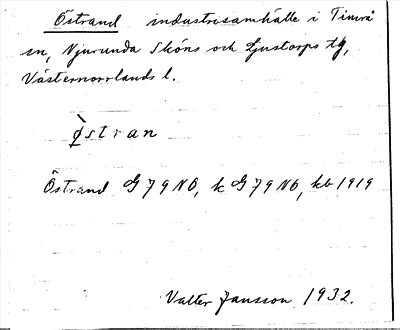 Östrand industrisamhälle i Timrå
sn, Njurunda Sköns och Ljustorps tg,
Västernorrlands l.
ø̀stran
Östrand G 79 NÖ, k G 79 NÖ, kb 1919
Valter Jansson 1932.